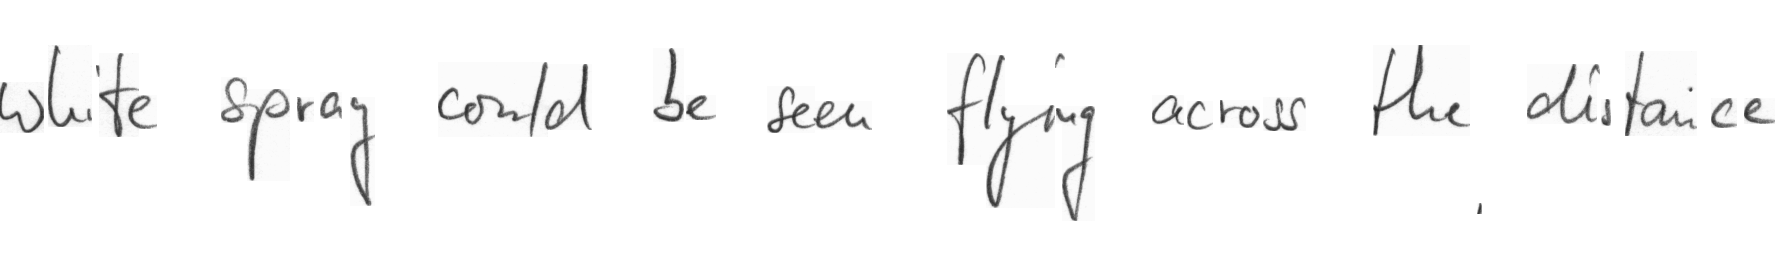 white spray could be seen flying across the distance